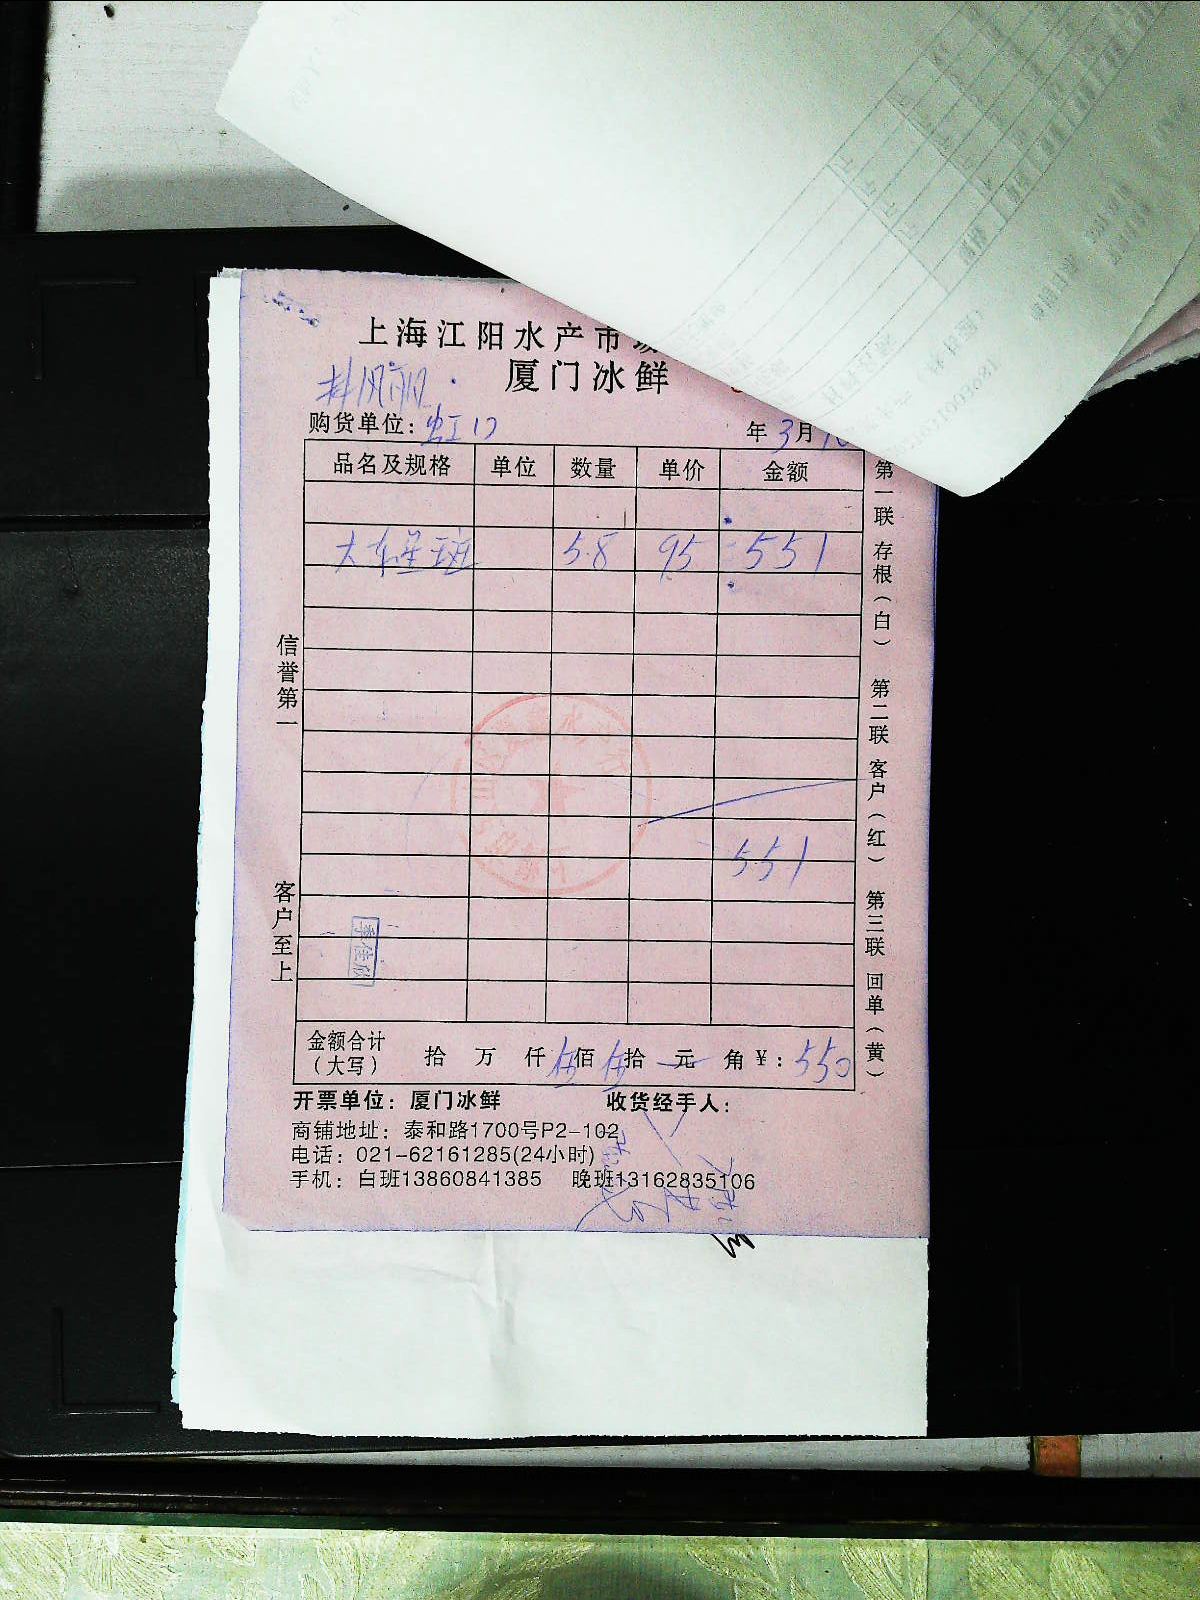 上海江阳水产市场
厦门冰鲜
购货单位：虹口
年 3月
品名及规格 单位 数量 单价 金额
大东星斑 5.8 95 551
551
金额合计（大写） 拾 万 仟 伍佰 伍拾 元 角 ¥：550
开票单位：厦门冰鲜 收货经手人：
商铺地址：泰和路1700号P2-102
电话：021-62161285(24小时)
手机：白班13860841385 晚班13162835106
信誉第一
客户至上
第一联 存根（白） 第二联 客户（红） 第三联 回单（黄）
李佳欣